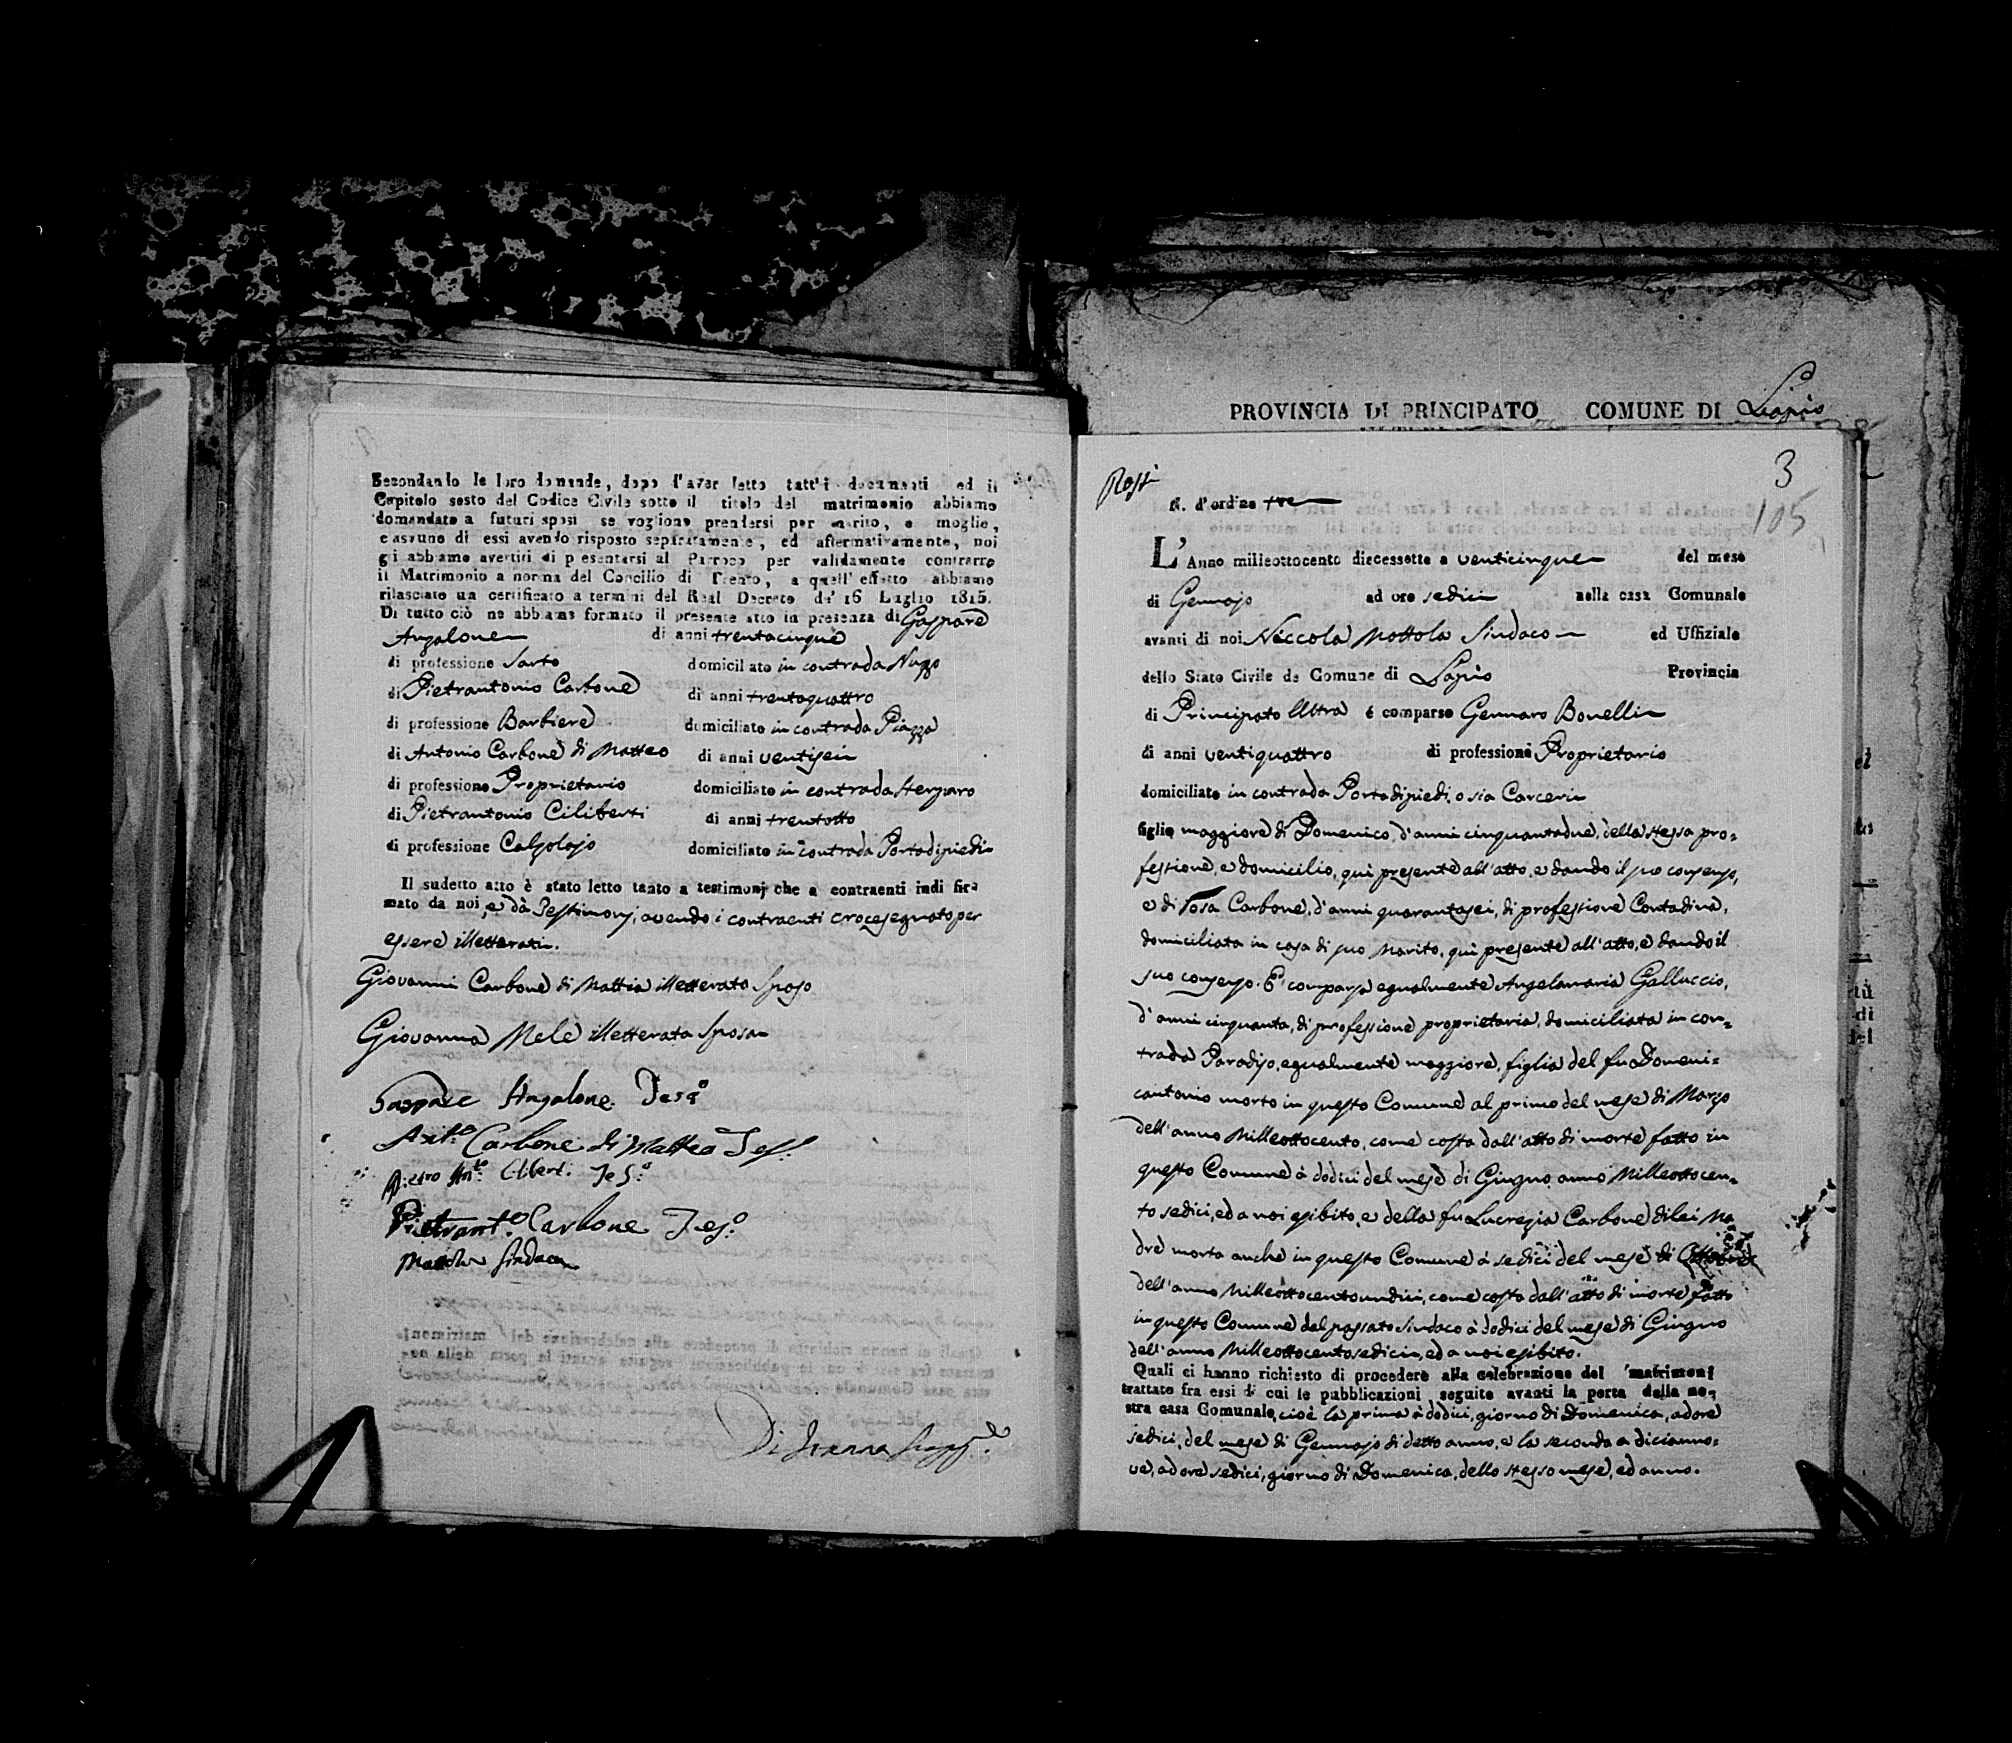 Secondando le loro domande, dopo l'aver letto tutt'i documenti ed il
Capitolo sesto del Codice Civile sotto il titolo del matrimonio abbiamo
domandato a futuri sposi se vogliono prendersi per marito, e moglie,
e assuno di essi avendo risposto separatamente, ed affermativamente, noi
gli abbiamo avertiti di presentarsi al Parroco per validamente contrarre
il Matrimonio a norma del Concilio di Trento, a quell'effetto abbiamo
rilasciato un certificato a termini del Real Decreto de' 16 Luglio 1815.
Di tutto ciò ne abbiamo formato il presente atto in presenza di Gaspare
Angalone di anni trentacinque
di professione Sarto domiciliato in contrada Nuzzo
di Pietrantonio Carbone di anni trentaquattro
di professione Barbiere domiciliato in contrada Piazza
di Antonio Carbone di Matteo di anni ventisei
di professione Proprietario domiciliato in contrada Sterparo
di Pietrantonio Ciliberti di anni trentotto
di professione Calzolajo domiciliato in contrada Portadipiedi
Il sudetto atto è stato letto tanto a testimonj che a contraenti indi fir=
mato da noi, e dà Testimonj, avendo i contraenti crocesegnato per
essere illetterati.
Giovanni Carbone di Mattia illetterato Sposo
Giovanna Mele illetterata Sposa
Gaspare Angalone Tesº
Antº Carbone di Matteo Tes:
Pietro Antº Cilibert: Tesº
Pietrantº Carbone Tesº
Mottola Sindaco
PROVINCIA DI PRINCIPATO COMUNE DI Lapio
Rossi
3
N. d'ordine tre
105
L'Anno milleottocento diecessette a venticinque del mese
di Gennajo ad ore sedici nella casa Comunale
avanti di noi Niccola Mottola Sindaco ed Uffiziale
dello Stato Civile de Comune di Lapio Provincia
di Principato Ultra é comparso Gennaro Bonelli
di anni ventiquattro di professione Proprietario
domiciliato in contrada Portadipiedi, o sia Carceri
figlio maggiore di Domenico, d'anni cinquantadue, della stessa pro=
fessione, e domicilio, quì presente all'atto, e dando il suo consenso,
e di Rosa Carbone, d'anni quarantasei, di professione Contadina,
domiciliata in casa di suo Marito, quì presente all'atto, e dando il
suo consenso. E' comparsa egualmente Angelamaria Galluccio,
d'anni cinquanta, di professione proprietaria, domiciliata in con=
trada Paradiso, egualmente maggiore, figlia del fu Domeni=
cantonio morto in questo Comune al primo del mese di Marzo
dell'anno Milleottocento, come costa dall'atto di morte fatto in
questo Comune à dodici del mese di Giugno anno Milleottocen=
to sedici, ed a noi esibito, e della fu Lucrezia Carbone di lei Ma
dre morta anche in questo Comune à sedici del mese di Ottobre
dell'anno Milleottocentoundici, come costa dall'atto di morte fatto
in questo Comune dal passato Sindaco à dodici del mese di Giugno
dell'anno Milleottocentosedici, ed a noi esibito.
Quali ci hanno richiesto di procedere alla celebrazione del matrimoni
trattato fra essi di cui le pubblicazioni seguite avanti la porta della no-
stra casa Comunale, cioè la prima à dodici, giorno di Domenica, ad ore
sedici, del mese di Gennajo di detto anno, e la seconda a dicianno=
ve, ad ore sedici, giorno di Domenica, dello stesso mese, ed anno.